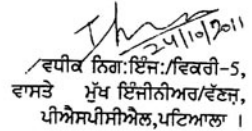 24/10/2011
ਵਧੀਕ ਨਿਗ:ਇੰਜ:/ਵਿਕਰੀ-5,
ਵਾਸਤੇ ਮੁੱਖ ਇੰਜੀਨੀਅਰ/ਵੱਣਜ,
ਪੀਐਸਪੀਸੀਐਲ,ਪਟਿਆਲਾ ।